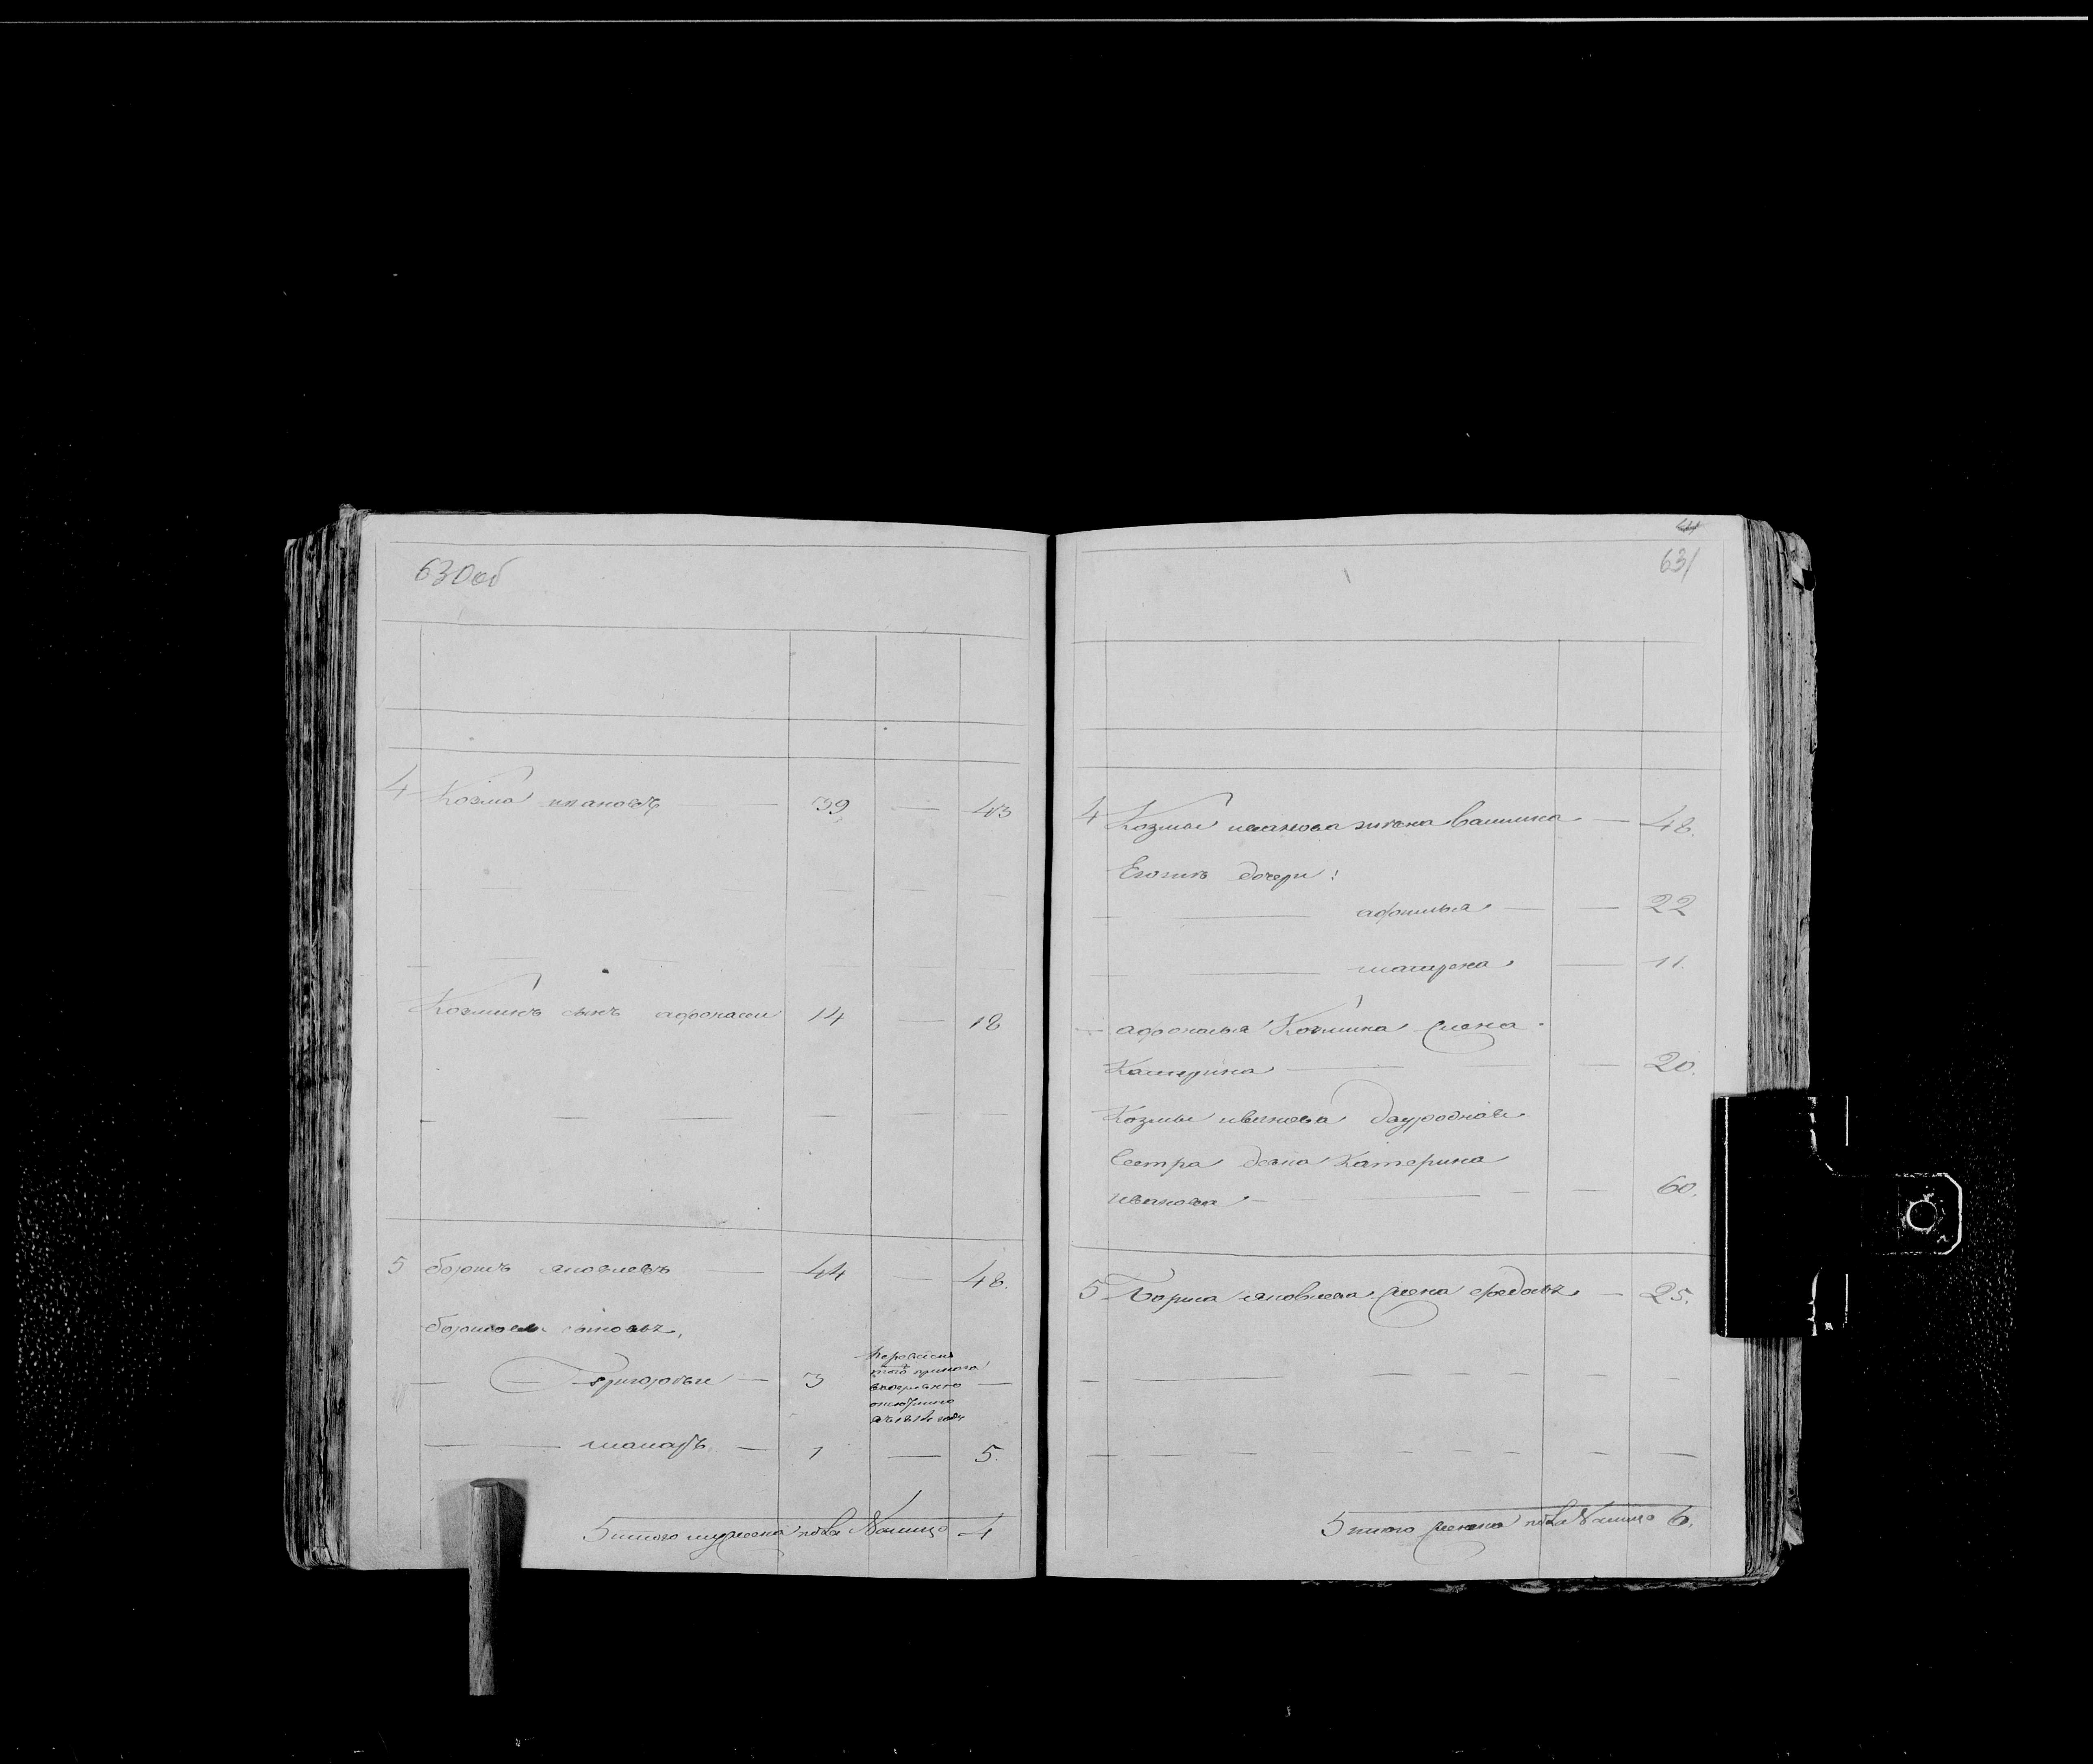 630об
4 Козма ивановъ — 39 — 43
Козминъ сынъ афонасеи 14 — 18
5 борисъ яковлевъ — 44 — 48.
борисовы сыновья,
григореи — 3
в 1812 году
макаръ — 1 — 5.
итого мужеска пола налицо 4
631
4 Козмы иванова жена — 48.
Егожъ дочери:
афимья — 22
матрена — 11.
афонасья Козмина жена
Катерина — 20.
Козмы иванова двуродная
сестра девка Катерина
иванова — 60.
5 Бориса яковлева жена федосья — 25.
5 итого женска пола налицо 6.